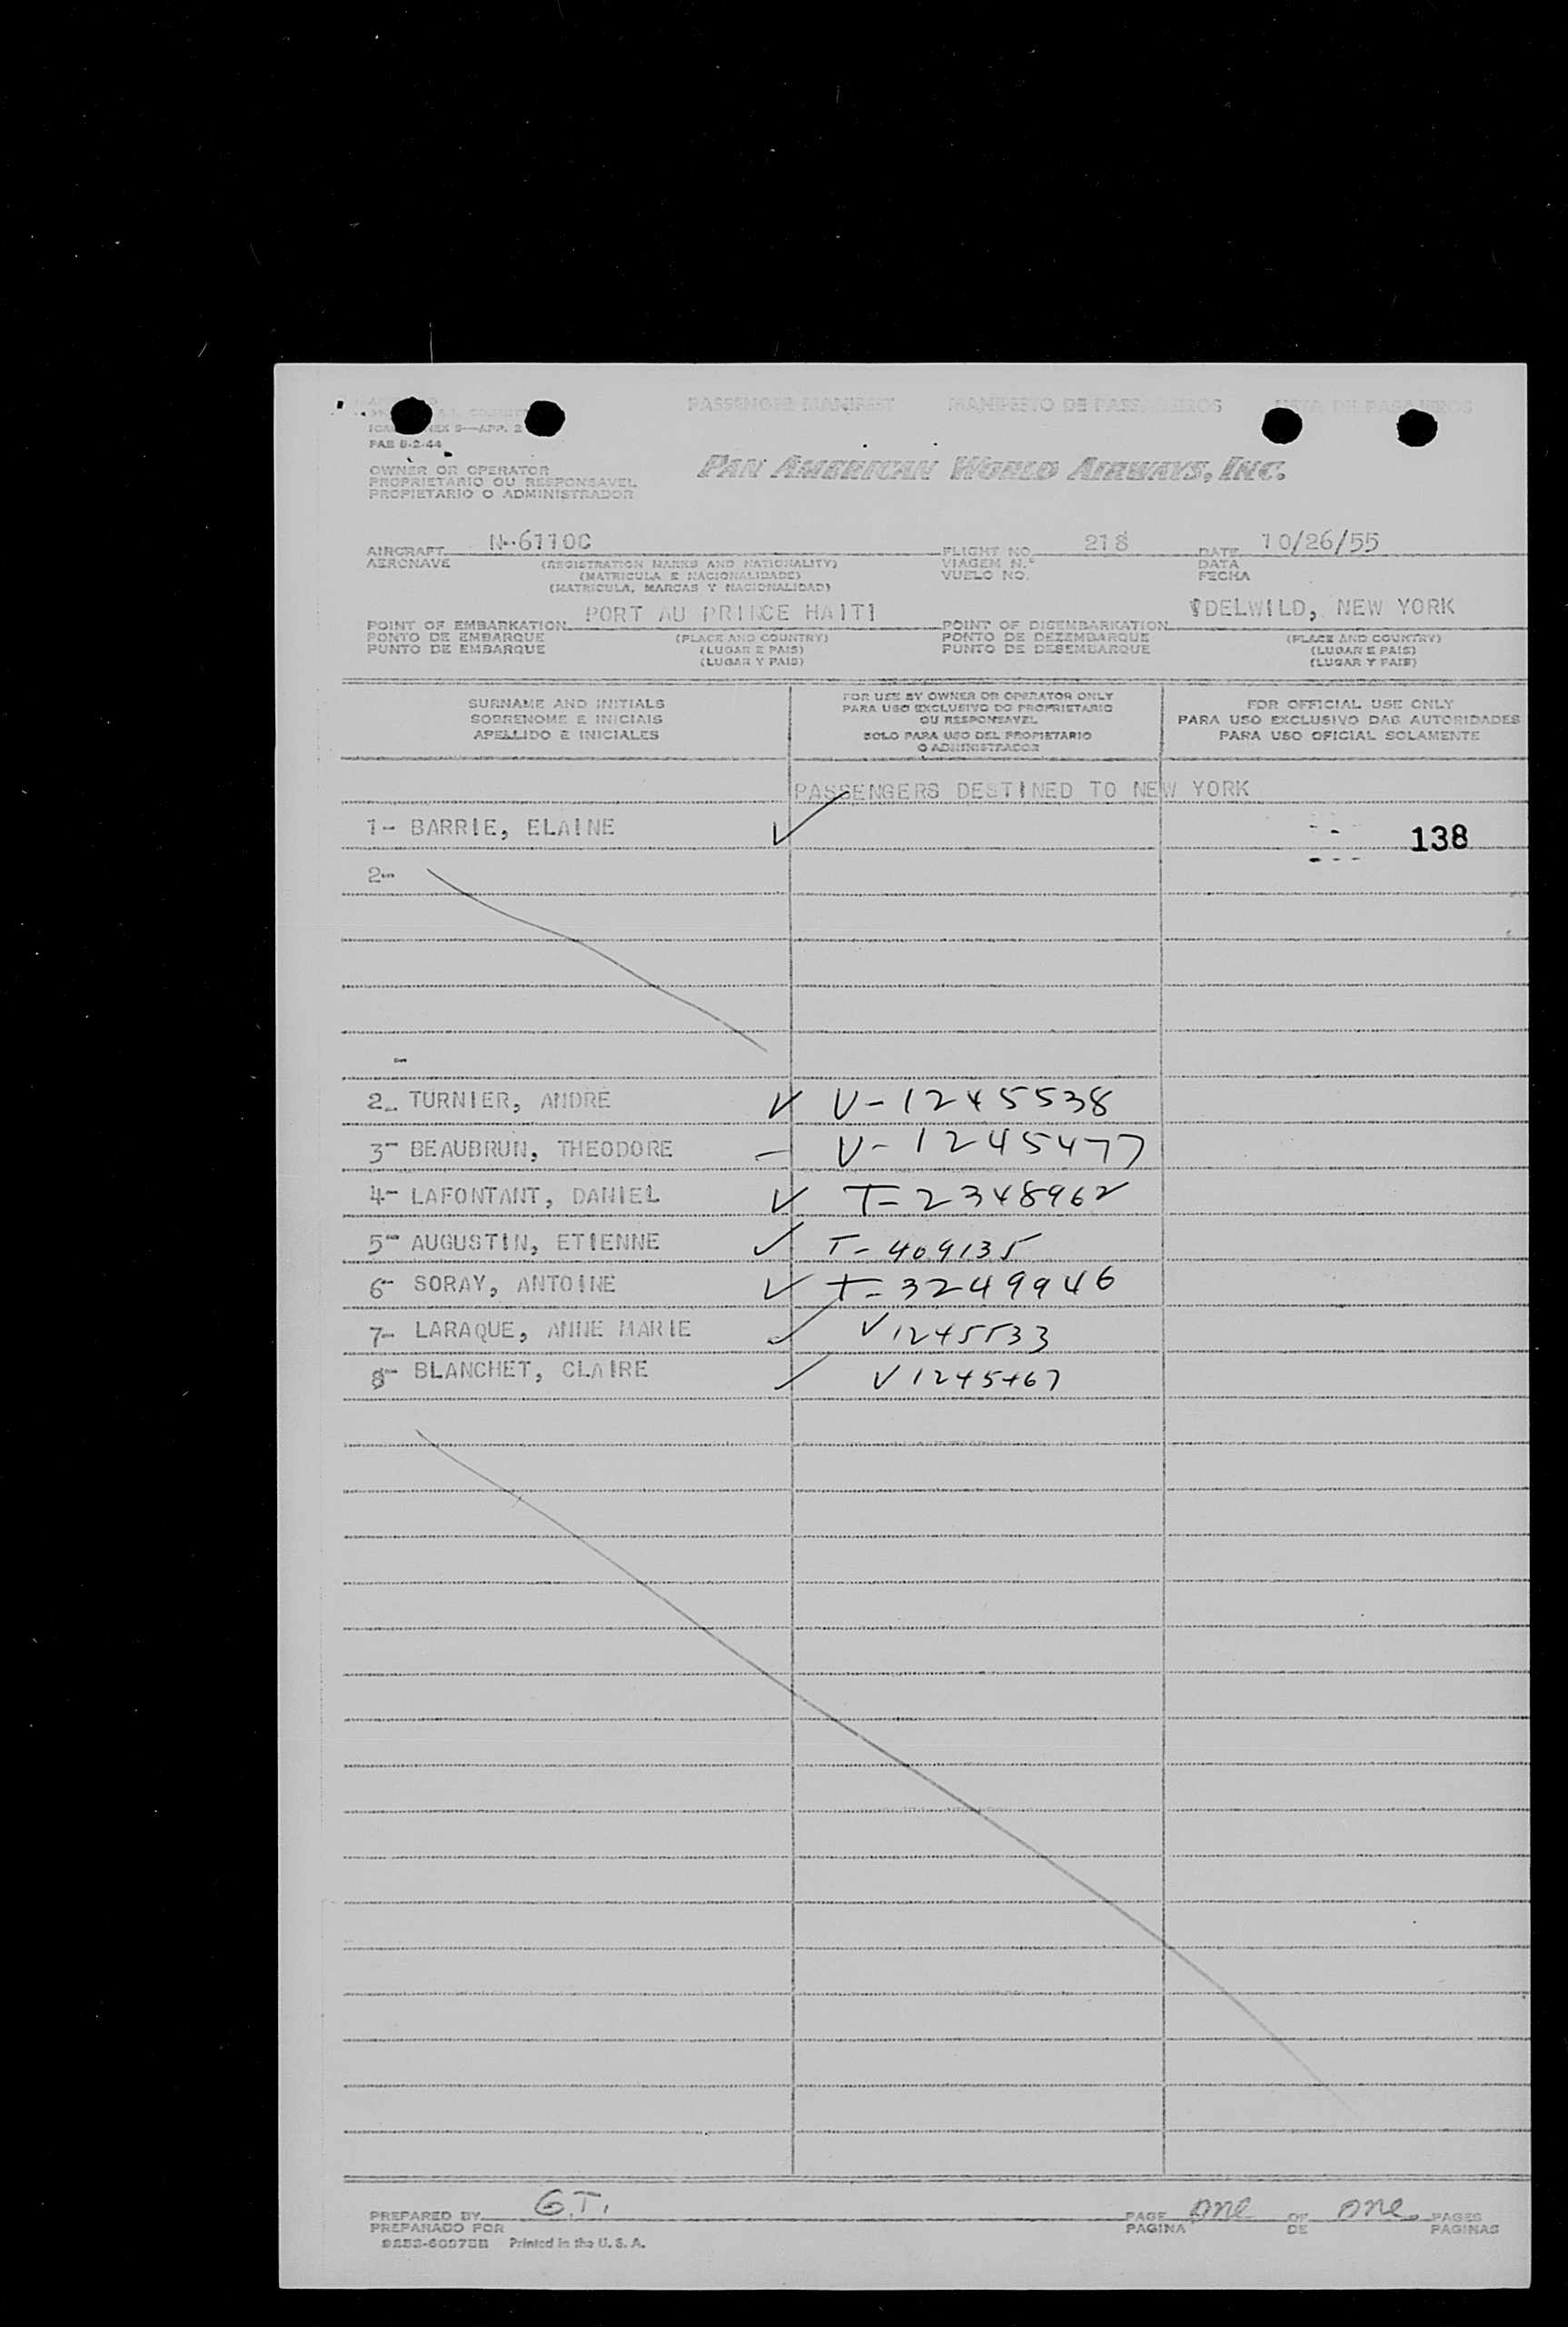 PASSENGER MANIFEST MANIFESTO DE PASSAGEIROS LISTA DE PASAJEROS
PAB 8-2-44
OWNER OR OPERATOR
PROPRIETARIO OU RESPONSAVEL
PROPIETARIO O ADMINISTRADOR
PAN AMERICAN WORLD AIRWAYS, INC.
AIRCRAFT N-6110C FLIGHT NO. 218 DATE 10/26/55
AERONAVE (REGISTRATION MARKS AND NATIONALITY) VIAGEM N.º DATA
(MATRICULA E NACIONALIDADE) VUELO NO. FECHA
(MATRICULA, MARCAS Y NACIONALIDAD)
PORT AU PRINCE HAITI IDELWILD, NEW YORK
POINT OF EMBARKATION POINT OF DISEMBARKATION
PONTO DE EMBARQUE (PLACE AND COUNTRY) PONTO DE DEZEMBARQUE (PLACE AND COUNTRY)
PUNTO DE EMBARQUE (LUGAR E PAIS) PUNTO DE DESEMBARQUE (LUGAR E PAIS)
(LUGAR Y PAIS) (LUGAR Y PAIS)
SURNAME AND INITIALS
SOBRENOME E INICIAIS
APELLIDO E INICIALES
FOR USE BY OWNER OR OPERATOR ONLY
PARA USO EXCLUSIVO DO PROPRIETARIO
OU RESPONSAVEL
SOLO PARA USO DEL PROPIETARIO
O ADMINISTRADOR
FOR OFFICIAL USE ONLY
PARA USO EXCLUSIVO DAS AUTORIDADES
PARA USO OFICIAL SOLAMENTE
PASSENGERS DESTINED TO NEW YORK
1- BARRIE, ELAINE 138
2-
2- TURNIER, ANDRE V-1245538
3- BEAUBRUN, THEODORE V-1245477
4- LAFONTANT, DANIEL T-2348962
5- AUGUSTIN, ETIENNE T-409135
6- SORAY, ANTOINE T-3249946
7- LARAQUE, ANNE MARIE V1245533
8- BLANCHET, CLAIRE V1245467
PREPARED BY G.T. PAGE one OF one PAGES
PREPARADO POR PAGINA DE PAGINAS
Printed in the U. S. A.